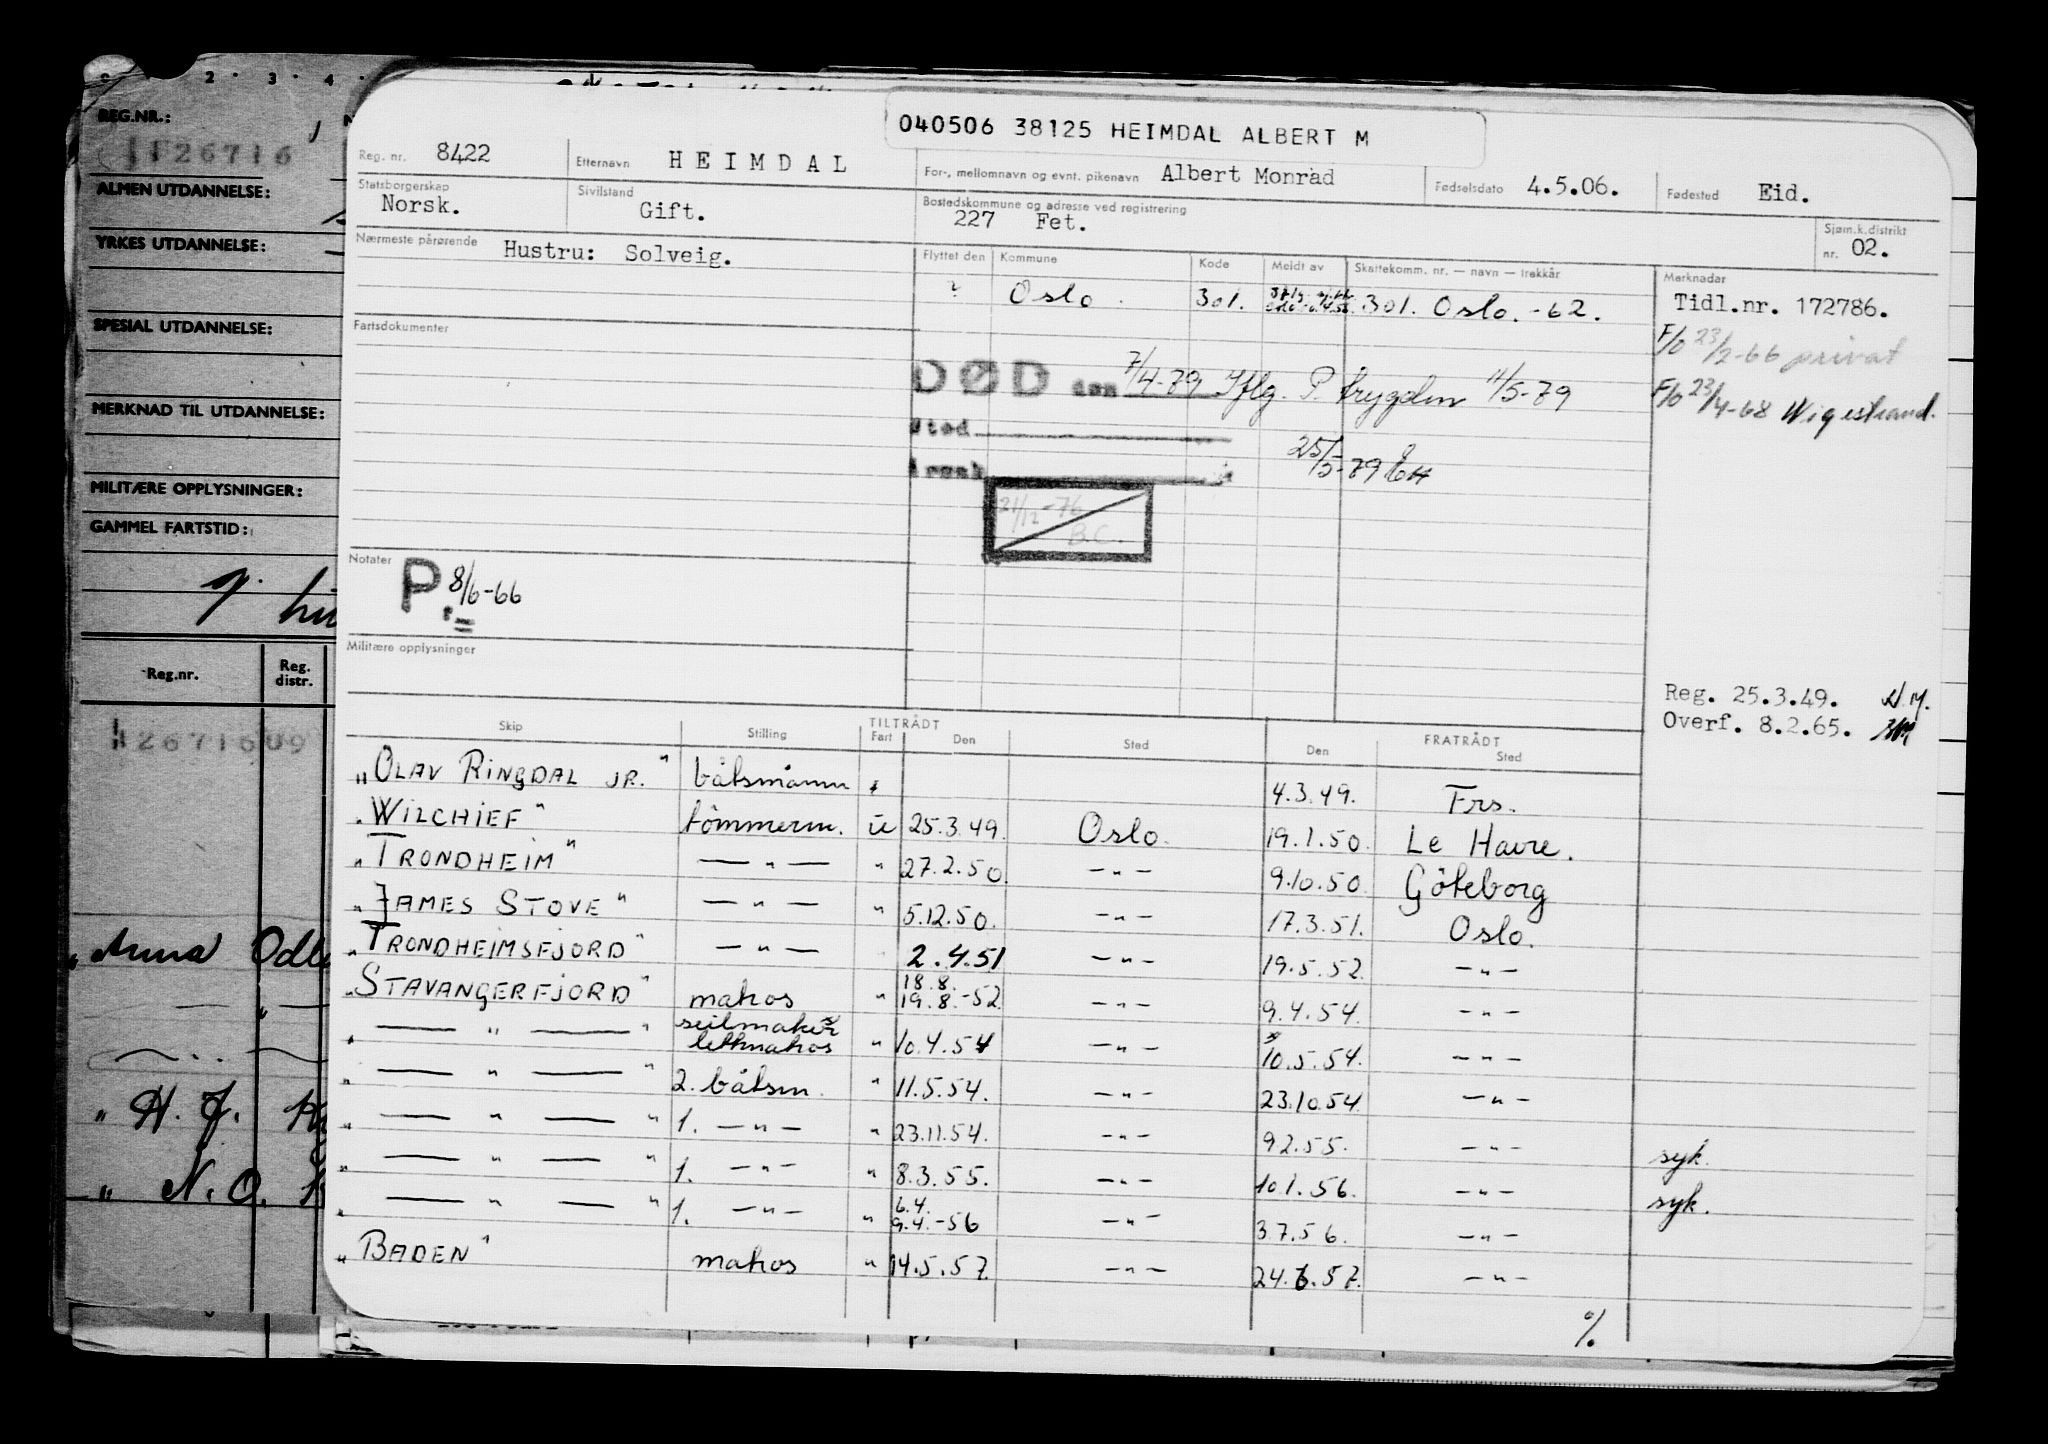 040506 38125 HEIMDAL ALBERT M
REG.NR.:
26716
ALMEN UTDANNELSE:
YRKES UTDANNELSE:
SPESIAL UTDANNELSE:
MERKNAD TIL UTDANNELSE:
MILITÆRE OPPLYSNINGER:
GAMMEL FARTSTID:
Reg.nr. Reg. distr.
"Anna
" H. J.
" N. O.
Reg. nr. 8422 Etternavn HEIMDAL For-, mellomnavn og evnt. pikenavn Albert Monrad Fødselsdato 4.5.06. Fødested Eid.
Statsborgerskap Norsk. Sivilstand Gift. Bostedskommune og adresse ved registrering 227 Fet. Sjøm.k.distrikt nr. 02.
Nærmeste pårørende Hustru: Solveig.
Flyttet den Kommune Kode Meldt av Skattekomm. nr. — navn — trekkår Merknader
? Oslo. 301. 301. Oslo. -62. Tidl.nr. 172786.
F/o 23/2-66 privat
F/o 23/4-68 Wigestrand.
Fartsdokumenter
DØD den 7/4-79 Iflg. P. trygden 11/5-79
Sted
Årsak
25/5-79
21/12-76
B.C.
Notater P. 8/6-66
Militære opplysninger
Reg. 25.3.49.
Overf. 8.2.65.
Skip Stilling TILTRÅDT Fart Den Sted FRATRÅDT Den Sted
"OLAV RINGDAL JR." båtsmann 4.3.49. Frs.
"WILCHIEF" tømmerm. u 25.3.49. Oslo. 19.1.50. Le Havre.
"TRONDHEIM" — " — " 27.2.50. — " — 9.10.50. Göteborg
"JAMES STOVE" — " — " 5.12.50. — " — 17.3.51. Oslo.
"TRONDHEIMSFJORD" — " — 2.4.51 — " — 19.5.52. — " —
"STAVANGERFJORD" matros " 18.8. 19.8.-52 — " — 9.4.54. — " —
" — " — " seilmaker lettmatros " 10.4.54 — " — 10.5.54. — " —
" — " — " 2. båtsm. " 11.5.54. — " — 23.10.54. — " —
" — " — " 1. — " — " 23.11.54. — " — 9.2.55. — " — syk.
" — " — " 1. — " — " 8.3.55. — " — 10.1.56. — " — syk.
" — " — " 1. — " — " 6.4. 9.4.-56 — " — 3.7.56. — " —
"BADEN" matros " 14.5.57. — " — 24.6.57. — " —
%